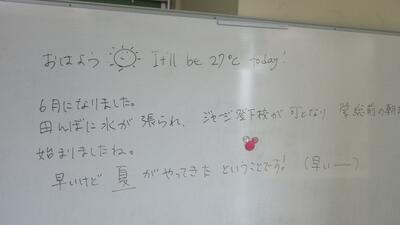 おはよう It'll be 27℃ today!
6月になりました。
田んぼに水が張られ、ジャージ登下校が可となり、学総前の朝
始まりましたね。
早いけど 夏 がやってきた ということです! (早いー)